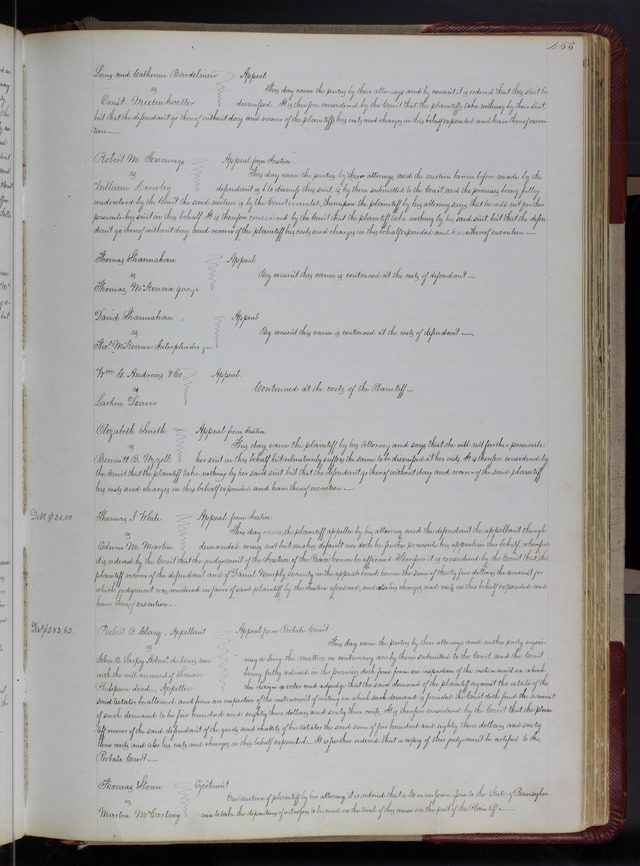 455
Louis and Catherine
vs
Appeal
This day came the parties by their attorneys and by consent it is ordered that this suit be
dismissed. It is therefore considered by the Court that the plaintiffs take nothing by their suit,
but that the defendant go thereof without day and recover of the plaintiffs his costs and charges in this behalf expended and have thereof execu-
tion.
Robert M.
vs
William
Appeal from Justice
This day came the parties by their attorneys and the motion herein before made by the
defendant to dismiss this suit, is by them submitted to the Court and the premises being fully
understood by the Court the said motion is by the Court overruled, thereupon the plaintiff by his attorney says that he will not further
prosecute his suit in this behalf. It is therefore considered by the Court that the plaintiff take nothing by his said suit, but that the defen-
dant go thereof without day and recover of the plaintiff his costs and charges in this behalf expended and have thereof execution.
Thomas Shannahan
vs
Thomas McKenna
Appeal
By consent this cause is continued at the costs of defendant
David Shannahan
vs
Thos. McKenna Interpleader
Appeal
By consent this cause is continued at the costs of defendant
Wm. C. Andrews & Co.
vs
Larkin
Appeal
Continued at the costs of the Plaintiff
Elizabeth Smith
vs
Bennett B. Uzzell
Appeal from Justice
This day came the plaintiff by her Attorney and says that she will not further prosecute
her suit in this behalf but voluntarily suffers the same to be dismissed at her costs. It is therefore considered by
the Court that the plaintiff take nothing by her said suit but that the defendant go thereof without day and recover of the said plaintiff
his costs and charges in this behalf expended and have thereof execution.
Debt $
Thomas J. White
vs
Edwin M. Martin
Appeal from Justice
This day came the plaintiff appellee by his attorney and the defendant the appellant though
demanded comes not but makes default nor doth he further prosecute his appeal in this behalf, wherefore
it is ordered by the Court that the judgement of the Justice of the Peace herein be affirmed. Therefore it is considered by the Court that the
plaintiff recover of the defendant and of Daniel Murphy security in the appeal bond herein the sum of thirty dollars the amount for
which judgement was rendered in favor of said plaintiff by the Justice aforesaid, and also his charges and costs in this behalf expended and
have thereof execution.
Debt $583.63.
Robert C. Appellant
vs
John B. Admr. de bonis non
with the will annexed of
decd. Appellee
Appeal from Probate Court
This day came the parties by their attorneys and neither party requir-
ing a jury the matters in controversy are by them submitted to the Court, and the Court
being fully advised in the premises doth find from an inspection of the instrument on which
order and adjudge that the said demand of the plaintiff against the estate of the
said testator be allowed, and from an inspection of the instrument of writing on which such demand is founded the Court doth find the amount
of such demand to be five hundred and eighty three dollars and sixty three cents. It is therefore considered by the Court that the plain-
tiff recover of the said defendant of the goods and chattels of his testator the said sum of five hundred and eighty three dollars and sixty
three cents and also his costs and charges in this behalf expended. It is further ordered that a copy of this judgement be certified to the
Probate Court.
Thomas
vs
Martin McCartney
Ejectment
On motion of plaintiff by his attorney, it is ordered that a Commission issue to the State of Pennsylva-
nia to take the depositions of witnesses to be read on the trial of this cause on the part of the Plaintiff